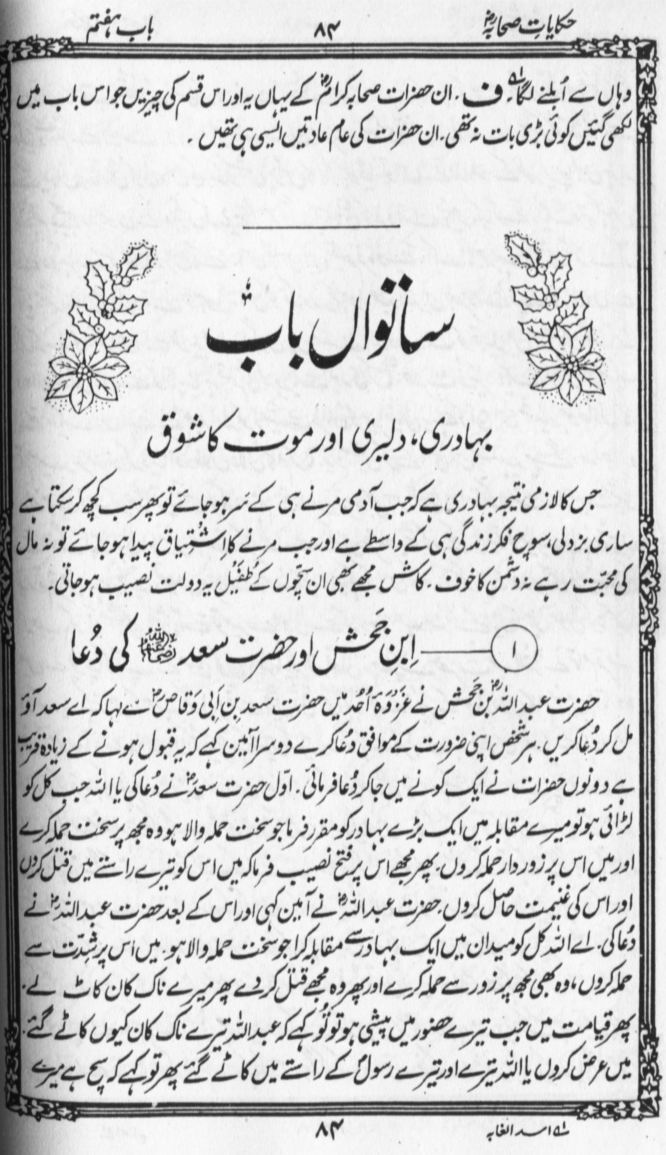 حکایات صحابہؓ ۸۴ باب ہفتم
وہاں سے اُبلنے لگا۔ ف۔ ان حضرات صحابہ کرامؓ کے یہاں یہ اور اس قسم کی چیزیں جو اس باب میں
لکھی گئیں کوئی بڑی بات نہ تھی۔ ان حضرات کی عام عادتیں ایسی ہی تھیں۔
ساتواں باب
بہادری، دلیری اور موت کا شوق
جس کا لازمی نتیجہ بہادری ہے کہ جب آدمی مرنے ہی کے سَر ہو جائے تو پھر سب کچھ کر سکتا ہے
ساری بزدلی، سوچ فکر زندگی ہی کے واسطے ہے اور جب مرنے کا اشتیاق پیدا ہو جائے تو نہ مال
کی محبّت رہے نہ دشمن کا خوف۔ کاش مجھے بھی ان سچّوں کے طفیل یہ دولت نصیب ہو جاتی۔
۱ ــــ اِبن جَحش اور حضرت سعد رضی اللہ عنہ کی دُعا
حضرت عبد اللہؓ بن جحش نے غزوۂ اُحد میں حضرت سعد بن اَبی وَقاصؓ سے کہا کہ اے سعد آؤ
مل کر دُعا کریں۔ ہر شخص اپنی ضرورت کے موافق دُعا کرے دوسرا آمین کہے کہ یہ قبول ہونے کے زیادہ قریب
ہے دونوں حضرات نے ایک کونے میں جا کر دُعا فرمائی۔ اوّل حضرت سعدؓ نے دُعا کی یا اللہ جب کل کو
لڑائی ہو تو میرے مقابلہ میں ایک بڑے بہادر کو مقرر فرما جو سخت حملہ والا ہو وہ مجھ پر سخت حملہ کرے
اور میں اس پر زور دار حملہ کروں۔ پھر مجھے اس پر فتح نصیب فرما کہ میں اس کو تیرے راستے میں قتل کروں
اور اس کی غنیمت حاصل کروں۔ حضرت عبد اللہؓ نے آمین کہی اور اس کے بعد حضرت عبد اللہؓ نے
دُعا کی۔ اے اللہ کل کو میدان میں ایک بہادر سے مقابلہ کرا جو سخت حملہ والا ہو۔ میں اس پر شدّت سے
حملہ کروں، وہ بھی مجھ پر زور سے حملہ کرے اور پھر وہ مجھے قتل کر دے پھر میرے ناک کان کاٹ لے۔
پھر قیامت میں جب تیرے حضور میں پیشی ہو تو تُو کہے کہ عبد اللہ تیرے ناک کان کیوں کاٹے گئے۔
میں عرض کروں یا اللہ تیرے اور تیرے رسولؐ کے راستے میں کاٹے گئے پھر تو کہے کہ سچ ہے میرے
لہ اسد الغابہ ۸۴